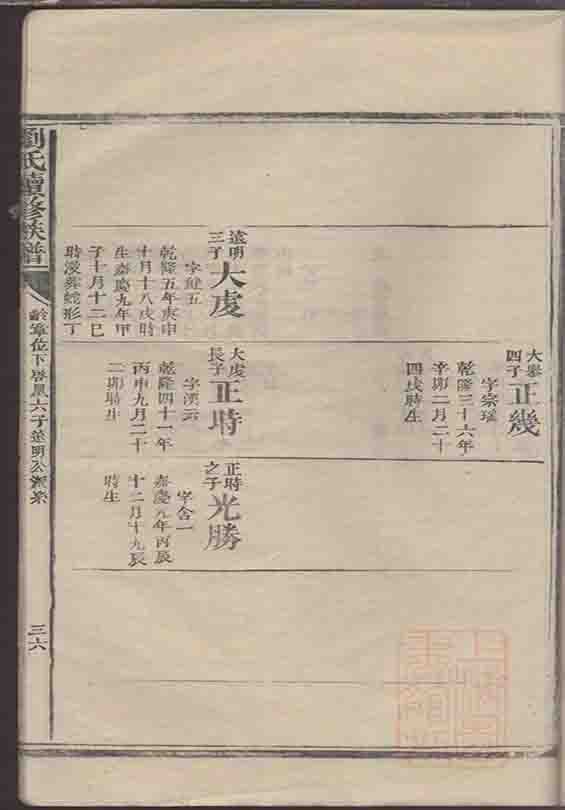 大㤗
四子
正幾
字宗瑤
乾隆三十六年
辛卯二月二十
四戌時生
遠明
三子
大虔
字健五
乾隆五年庚申
十月十八戌時
生嘉慶九年甲
子十月十二巳
時沒葬蛇形丁
大虔
長子
正時
字漢云
乾隆四十一年
丙申九月二十
二卯時生
正時
之子
光勝
字含一
嘉慶元年丙辰
十二月十九辰
時生
劉氏續修族譜
齡章位下啓鳳六子遠明公派系
三六